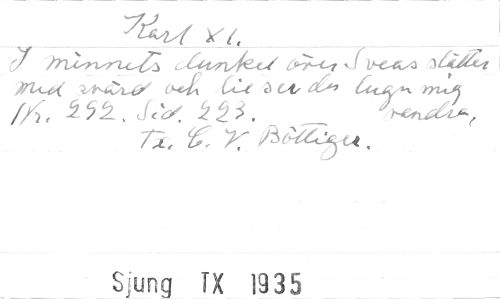 Karl XI.
I minnets dunkel över Sveas slätter
med svärd och lie ser du lugn mig
Nr. 292. Sid. 223. vandra,
Tx. C. V. Böttiger.
Sjung IX 1935